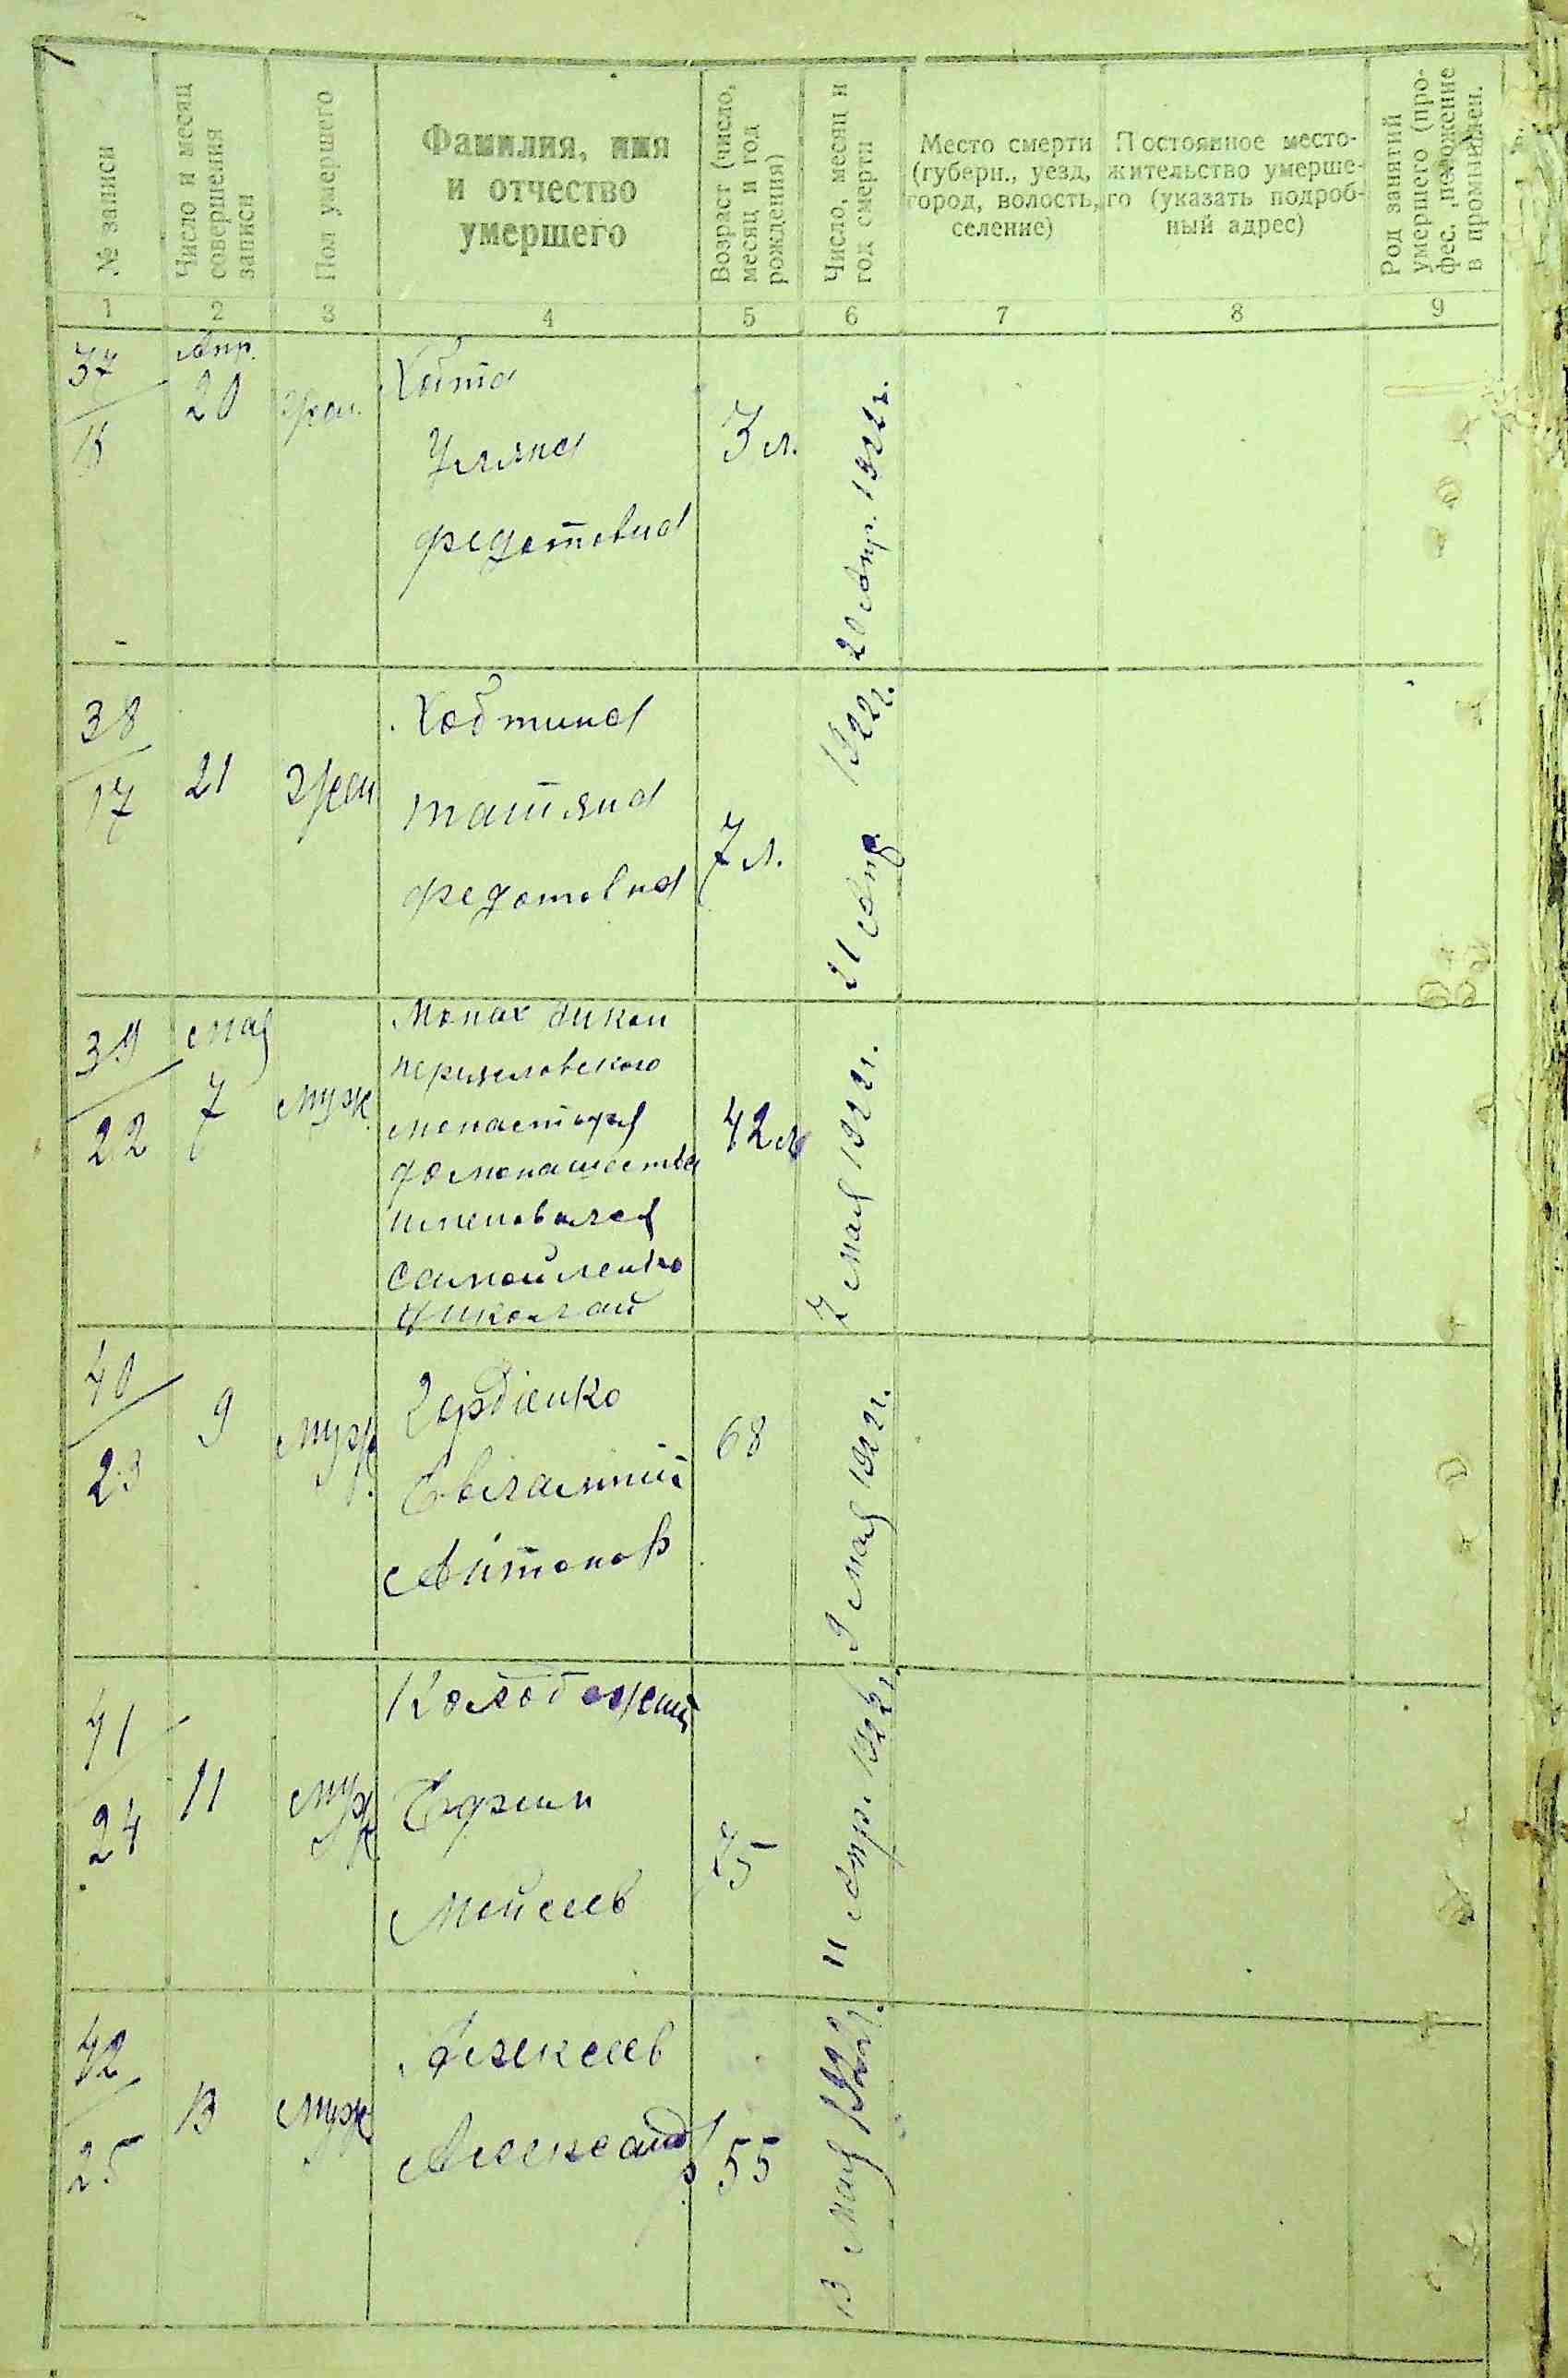 № записи
Число и месяц совершения записи
Пол умершего
Фамилия, имя
и отчество
умершего
Возраст (число, месяц и год рождения)
Число, месяц и год смерти
Место смерти
(губерн., уезд,
город, волость,
селение)
Постоянное место-
жительство умерше-
го (указать подроб-
ный адрес)
Род занятий
умершего (про-
фес., положение
в промышлен.
1 2 3 4 5 6 7 8 9
37
Апр.
20
жен.
Уляна
Федотовна
3 л.
20 Апр. 1922 г.
38
17
21
жен
Татіяна
Федотовна
7 л.
21 Апр. 1922 г.
39
22
мая
7
муж
Монах
монастыря
до монашества
именовался
Самойленко
Николай
42 л
7 мая 1922 г.
40
23
9
муж.
Гордіенко
Евлампий
Антонов
68
9 мая 1922 г.
41
24
11
муж
Ефим
Мойсеев
75
11 Апр. 1922 г.
42
25
13
муж
Алексеев
Александр
55
13 мая 1922 г.